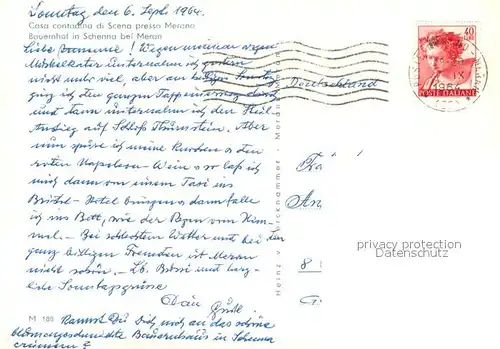 Sonntag den 6. Sept. 1964.
Casa contadina di Scena presso Merano
Bauernhof in Schenna bei Meran
Liebe ! Wegen meinem argen
Muskelkater unternahm ich gestern
nicht mehr viel, aber am heutigen Sonntag
ging ich den ganzen Tappeinerweg durch
und dann unternahm ich den Steil-
Anstieg auf Schloß Thurnstein. Aber
nun spüre ich meine Knochen & den
roten Napoleon-Wein & so laß ich
mich dann von einem Taxi ins
Bristol-Hotel bringen & dann falle
ich ins Bett, wie der Regen vom Him-
mel. – Bei schlechtem Wetter und bei den
ganz billigen Fremden ist Meran
nicht schön. – Lb. Bussi und herz-
liche Sonntagsgrüsse
Dein
M 180
Kannst Du Dich noch an das schöne
blumengeschmückte Bauernhaus in Schenna
erinnern?
Heinz v. Bricknammer - Meran
Deutschland
40
POSTE ITALIANE
IX
1964
privacy protection
Datenschutz
8